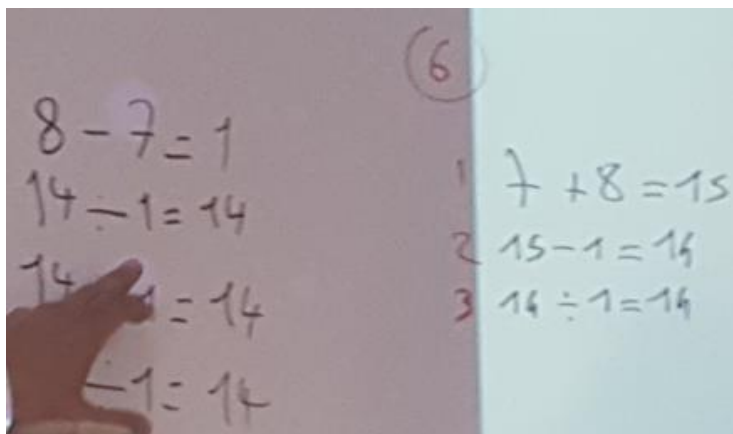 6
8 - 7 = 1
14 ÷ 1 = 14
14 1 = 14
÷ 1 = 14
1 7 + 8 = 15
2 15 - 1 = 14
3 14 ÷ 1 = 14